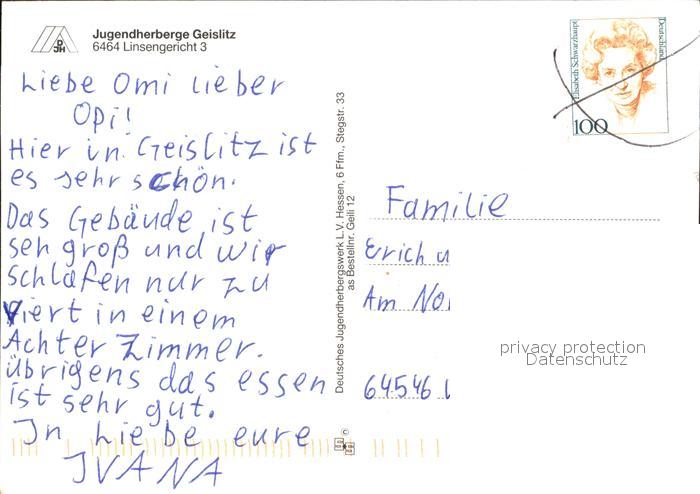 Jugendherberge Geislitz
6464 Linsengericht 3
Liebe Omi lieber
Opi!
Hier in Geislitz ist
es sehr schön.
Das Gebäude ist
seh groß und wir
schlafen nur zu
viert in einem
Achter Zimmer.
übrigens das essen
ist sehr gut.
In Liebe eure
IVANA
Deutsches Jugendherbergswerk L.V. Hessen, 6 Ffm., Stegstr. 33
as Bestellnr. Geili 12
Elisabeth Schwarzhaupt
Deutschland
100
Familie
Erich u
Am No
64546
privacy protection
Datenschutz